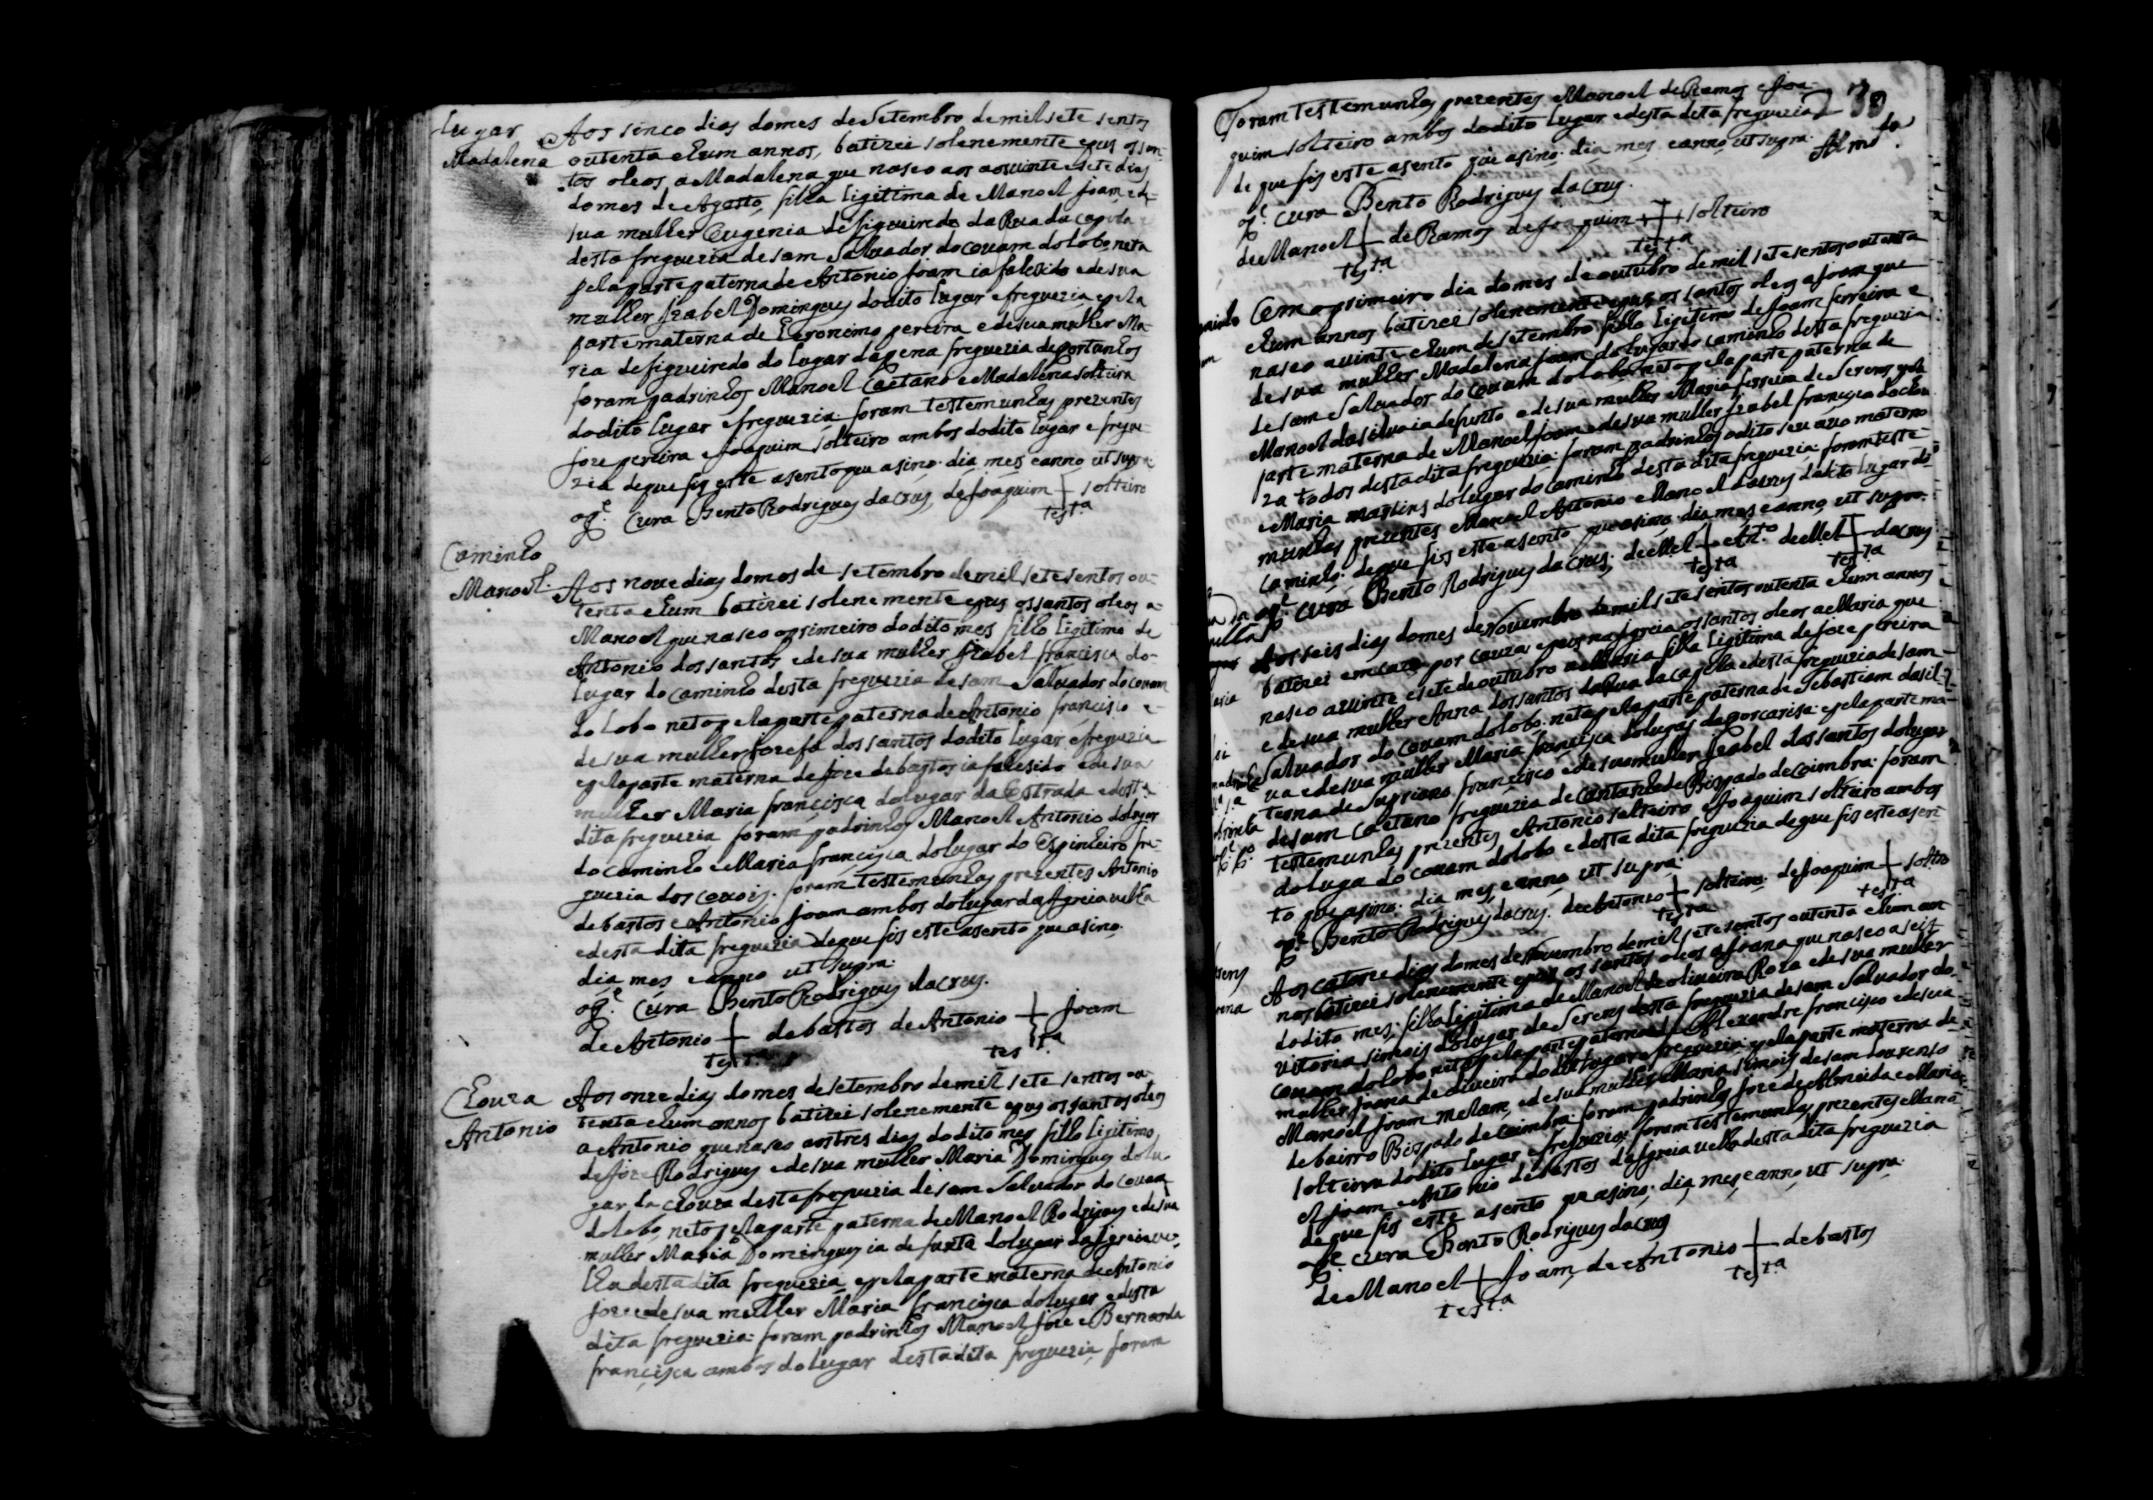 Lugar
Madalena
Aos sinco dias do mes de Setembro de mil sete sentos
outenta e hum annos, batizei solenemente e pus os san-
tos oleos a Madalena que nasco aos vinte e sete dias
do mes de Agosto, filha ligitima de Manoel Joam e de
sua mulher Eugenia de figueiredo da Rua da Capela
desta freguezia de sam Salvador do Covam do lobo neta
pela parte paterna de Antonio Joam ia falesido e de sua
mulher Izabel Domingues do dito lugar e freguezia e pela
parte materna de Geronimo pereira e de sua mulher Ma-
ria de figueiredo do lugar da pena freguezia de portunhos
foram padrinhos Manoel Caetano e Madalena solteira
do dito lugar e freguezia foram testemunhas prezentes
Joze pereira e Joaquim solteiro ambos do dito lugar e fregue-
zia de que fis este asento que asino dia mes e anno ut supra
Cura Bento Rodrigues da Crus, de Joaquim + solteiro
test.a
Caminho
Manoel
Aos nove dias do mes de setembro de mil sete sentos ou-
tenta e hum batizei solenemente e pus os santos oleos a
Manoel que nasco o primeiro do dito mes filho ligitimo de
Antonio dos santos e de sua mulher Izabel francisca do
lugar do Caminho desta freguezia de sam Salvador do Covam
do Lobo neto pela parte paterna de Antonio francisco e
de sua mulher Jozefa dos santos do dito lugar e freguezia
e pela parte materna de Joze de bastos ia falesido e de sua
mulher Maria francisca do lugar da Estrada e desta
dita freguezia foram padrinhos Manoel Antonio do lugar
do Caminho e Maria francisca do lugar do Espinheiro fre-
guezia dos Covois. foram testemunhas prezentes Antonio
de bastos e Antonio Joam ambos do lugar da Igreia velha
e desta dita freguezia de que fis este asento que asino
dia mes e anno ut supra.
Cura Bento Rodrigues da Crus.
de Antonio + de bastos de Antonio + Joam
test.a test.a
Choura
Antonio
Aos onze dias do mes de setembro de mil sete sentos ou-
tenta e hum annos batizei solenemente e pus os santos oleos
a Antonio que nasco aos tres dias do dito mes filho ligitimo
de Joze Rodrigues e de sua mulher Maria Domingues do lu-
gar da Choura desta freguezia de sam Salvador do Covam
do lobo, neto pela parte paterna de Manoel Rodrigues e de sua
mulher Maria Domingues ia defunta do lugar da Igreia ve-
lha desta dita freguezia e pela parte materna de Antonio
Joze e de sua mulher Maria francisca do lugar e desta
dita freguezia: foram padrinhos Manoel Joze e Bernarda
francisca ambos do lugar desta dita freguezia foram
foram testemunhas prezentes Manoel de Ramos e Joa-
quim solteiro ambos do dito lugar e desta dita freguezia
de que fis este asento que asino dia mes e anno ut supra.
Cura Bento Rodrigues da Crus.
de Manoel + de Ramos de Joaquim + solteiro
test.a test.a
Em o primeiro dia do mes de outubro de mil sete sentos outenta
e hum annos batizei solenemente e pus os santos oleos a Joam que
nasco a vinte e hum de setembro filho ligitimo de Joam ferreira e
de sua mulher Madalena Joam do lugar do Caminho desta freguezia
de sam Salvador do Covam do lobo neto pela parte paterna de
Manoel da silva ia defunto e de sua mulher Maria ferreira de Serens e pela
parte materna de Manoel Joam e de sua mulher Izabel francisca
za todos desta dita freguezia: foram padrinhos o dito seu avo materno
e Maria martins do lugar do Caminho desta dita freguezia: foram teste-
munhas prezentes Manoel Antonio e Manoel da Crus do dito lugar do
Caminho: de que fis este asento que asino dia mes e anno ut supra.
Cura Bento Rodrigues da Crus; de Mel + Ant.o de Mel + da Crus
test.a test.a
Aos seis dias do mes de Novembro de mil sete sentos outenta e hum annos
batizei em caza por cauza e pus na Igreia os santos oleos a Maria que
nasco a vinte e sete de outubro filha ligitima de Joze pereira
e de sua mulher Anna dos santos da Rua da Capela e desta freguezia de sam
Salvador do Covam do lobo: neta pela parte paterna de Sebastiam da sil-
va e de sua mulher Maria francisca do lugar e pela parte ma-
terna de Supriano francisco e de sua mulher Izabel dos santos do lugar
de sam Caetano freguezia de Cantanhede Bispado de Coimbra: foram
testemunhas prezentes Antonio solteiro e Joaquim solteiro ambos
do luga do Covam do lobo e desta dita freguezia de que fis este asen-
to que asino: dia mes e anno ut supra:
Bento Rodrigues da Crus. de Antonio + solteiro: de Joaquim + soltro
test.a test.a
Aos catorze dias do mes de Novembro de mil sete sentos outenta e hum an-
nos batizei solenemente e pus os santos oleos a Joana que nasco a seis
do dito mes: filha ligitima de Manoel de oliveira Roza e de sua mulher
Vitoria simois do lugar de Serens desta freguezia de sam Salvador do
Covam do lobo neta pela parte paterna de Alexandre francisco e de sua
mulher Joana de oliveira do dito lugar e freguezia e pela parte materna de
Manoel Joam e de sua mulher Maria simois de sam Lourenso
de bairro Bispado de Coimbra: foram padrinhos Joze de Almeida e Maria
solteira do dito lugar e freguezia foram testemunhas prezentes Mano-
el Joam e Antonio de bastos da Igreia velha desta dita freguezia
de que fis este asento que asino: dia, mes e anno, ut supra.
Cura Bento Rodrigues da Crus
de Manoel + Joam, de Antonio + de bastos
test.a test.a